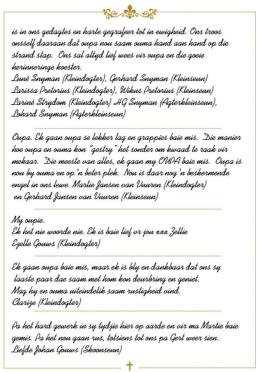 is in ons gedagtes en harte gegrafeer tot in ewigheid. Ons troos
onsself daaraan dat oupa nou saam ouma hand aan hand op die
strand stap. Ons sal altyd lief wees vir oupa en die goeie
herinneringe koester.
Luné Snyman (Kleindogter), Gerhard Snyman (Kleinseun)
Larissa Pretorius (Kleindogter), Wikus Pretorius (Kleinseun)
Lariné Strydom (Kleindogter) HQ Snyman (Agterkleinseun),
Lohard Snyman (Agterkleinseun)
Oupa. Ek gaan oupa se lekker lag en grappies baie mis. Die manier
hoe oupa en ouma kon "gestry" het sonder om kwaad te raak vir
mekaar. Die meeste van alles, ek gaan my OUPA baie mis. Oupa is
nou by ouma en op 'n beter plek. Nou is daar nog 'n beskermende
engel in ons lewe. Marlie Jansen van Vuuren (Kleindogter)
en Gerhard Jansen van Vuuren (Kleinseun)
My oupie.
Ek het nie woorde nie. Ek is baie lief vr jou xxx Zellie
Ezelle Gouws (Kleindogter)
Ek gaan oupa baie mis, maar ek is bly en dankbaar dat ons sy
laaste paar dae saam met hom kon deurbring en geniet.
Mag hy en ouma uiteindelik saam rustigheid vind.
Clarize (Kleindogter)
Pa het hard gewerk in sy tydjie hier op aarde en vir ma Martie baie
gemis. Pa het nou gaan rus, totsiens tot ons pa Gert weer sien.
Liefde Johan Gouws (Skoonseun)